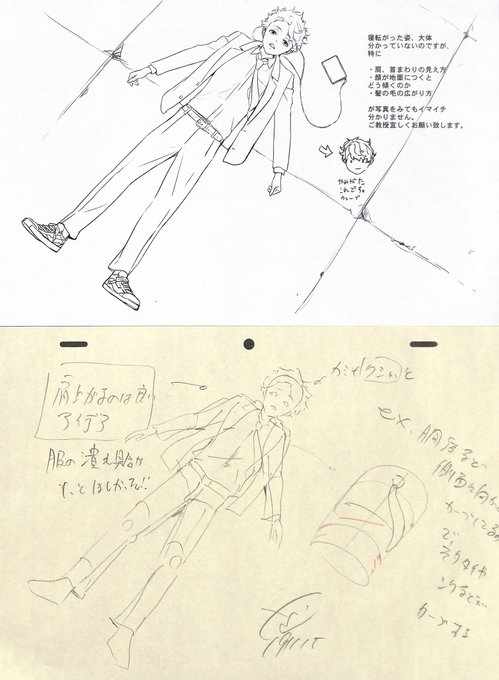 寝転がった姿、大体
分かっていないのですが、
特に
・肩、首まわりの見え方
・顔が地面につくと
どう傾くのか
・髪の毛の広がり方
が写真をみてもイマイチ
分かりません。
ご教授宜しくお願い致します。
かみがた
これでちゅ
肩上がるのは良い
アイデア
服の潰れ具合が
もっとほしかった!!
カミもクシャっと
ex、胴体
側面を向か
カーブしてるの
で、
ネクタイや
カーブする